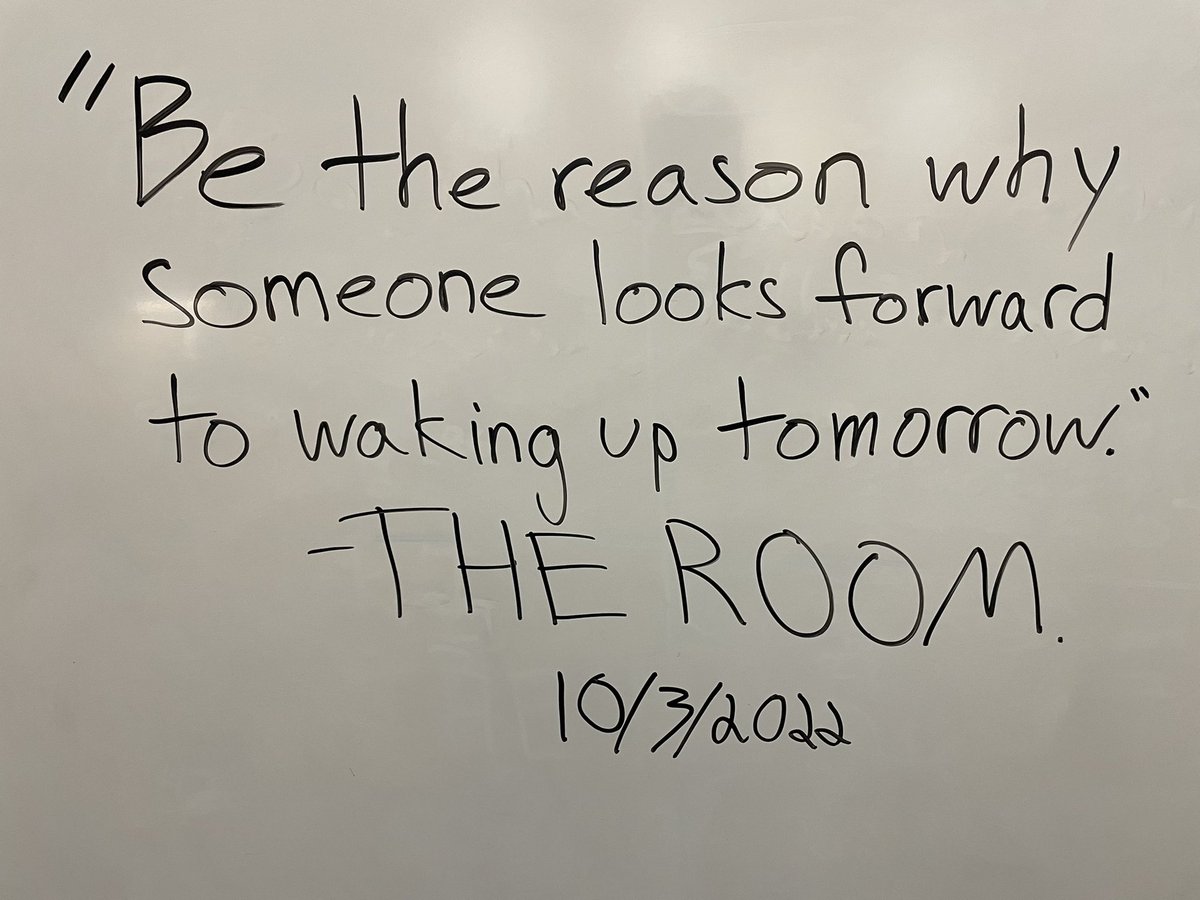 "Be the reason why
someone looks forward
to waking up tomorrow."
-THE ROOM.
10/3/2022